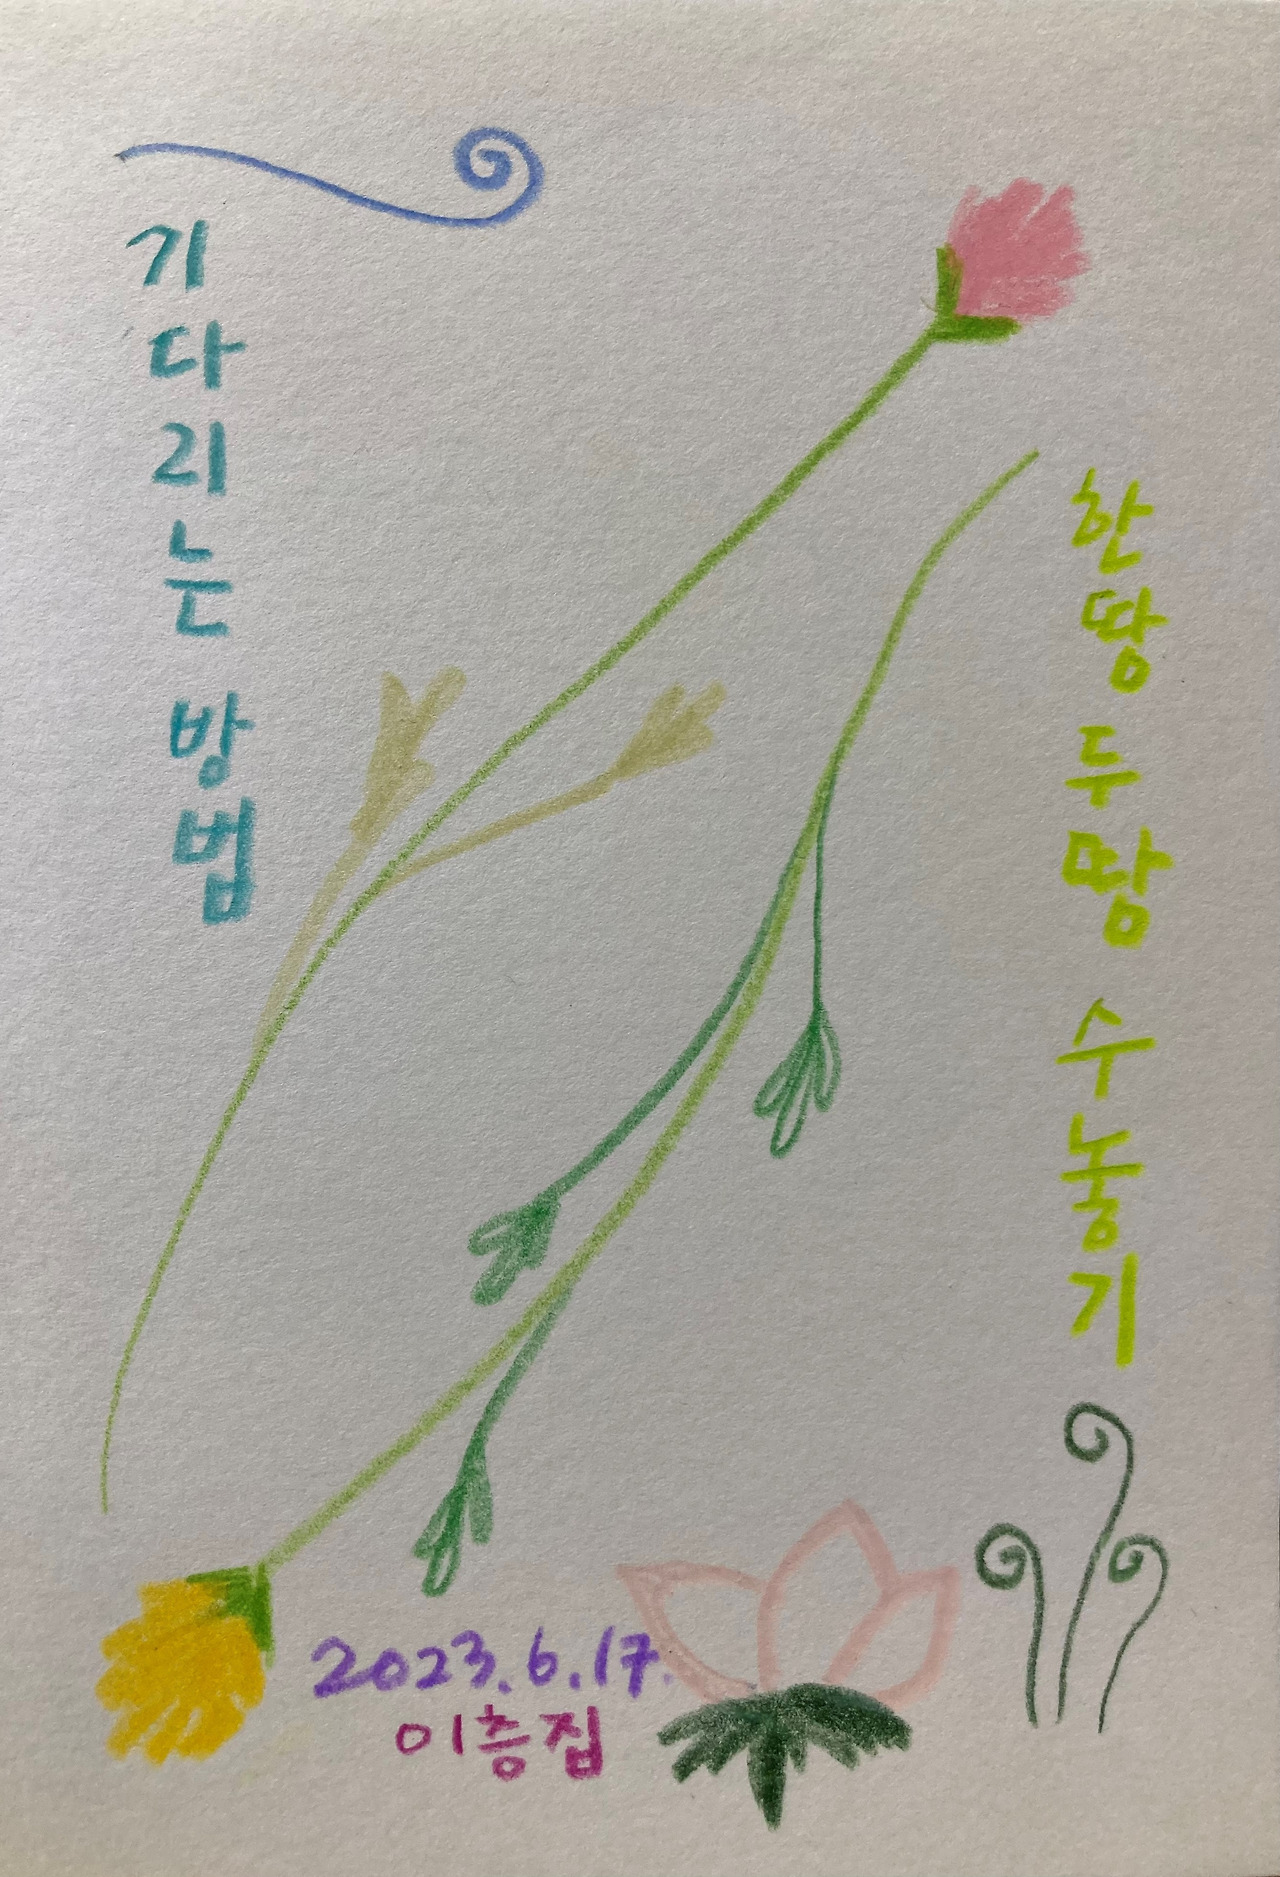 기다리는 방법
한땅 두땀 수놓기
2023.6.17.
이층집